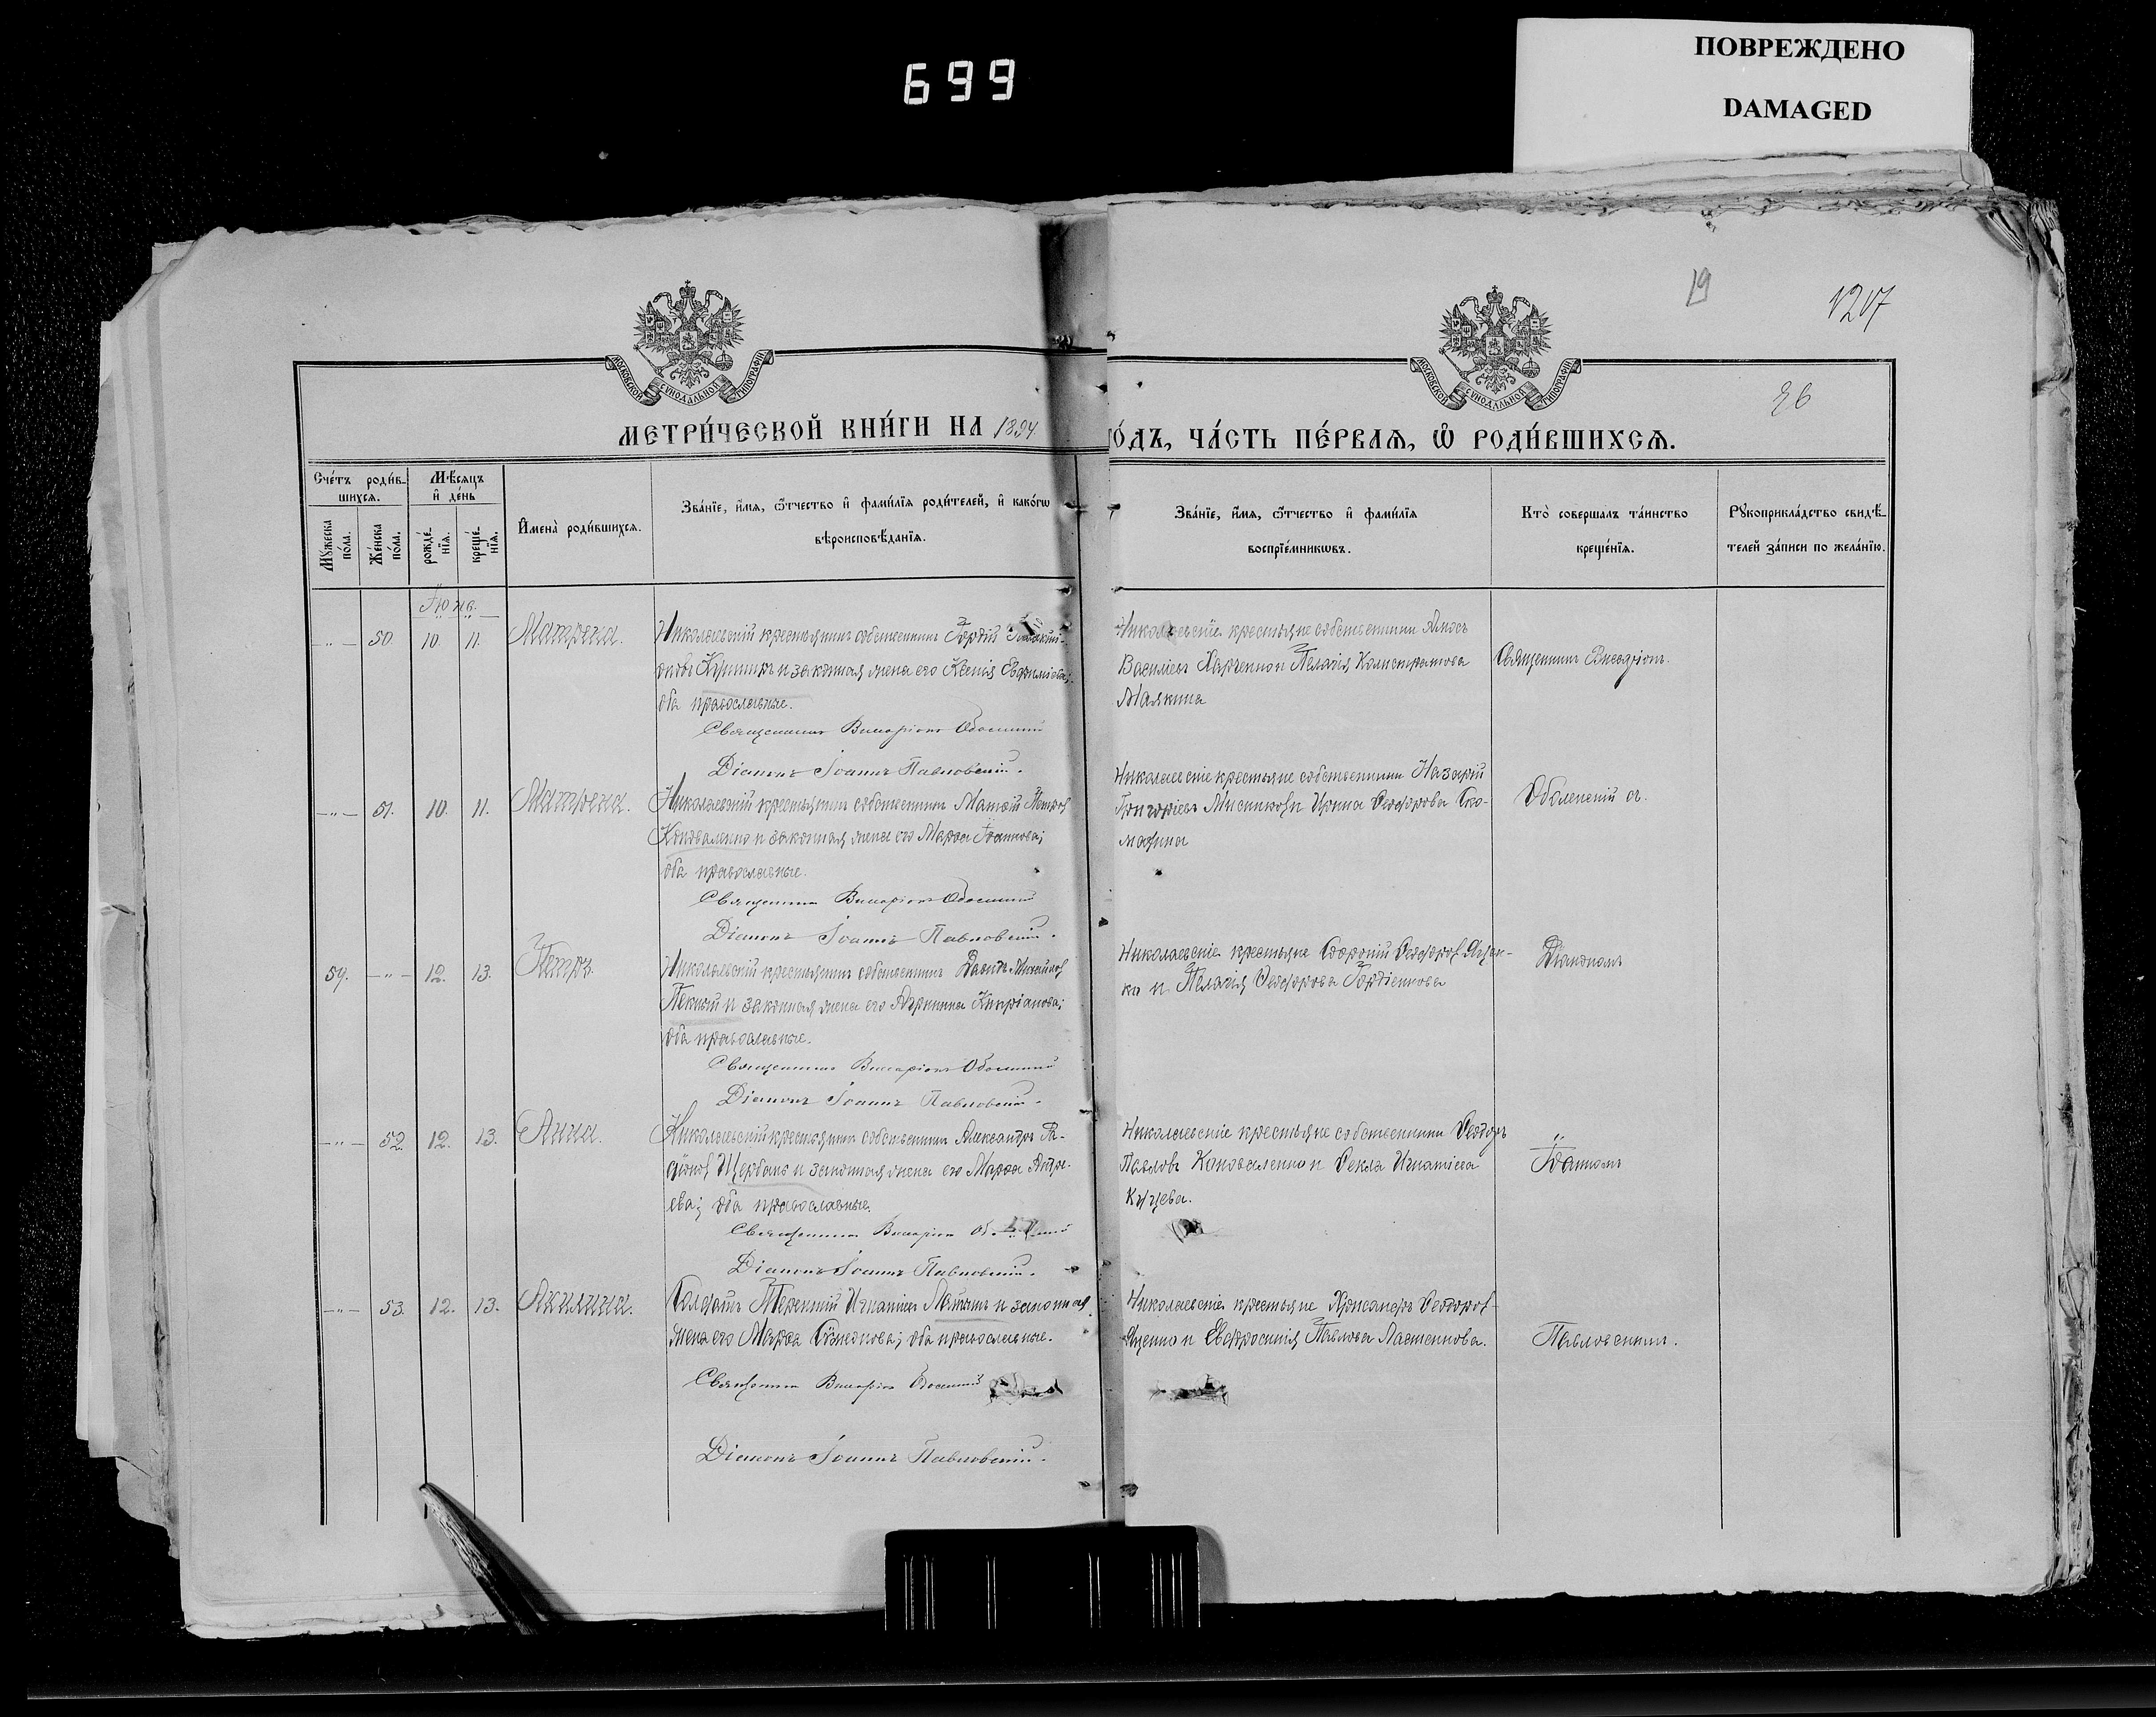 699
ПОВРЕЖДЕНО
DAMAGED
19
1207
26
МОСКОВСКОЙ СУНОДАЛЬНОЙ ТИПОГРАФІИ
МОСКОВСКОЙ СУНОДАЛЬНОЙ ТИПОГРАФІИ
МЕТРИ́ЧЕСКОЙ КНИ́ГИ НА 1894
ГО́ДЪ, ЧА́СТЬ ПЕ́РВАѦ, Ѡ РОДИ́ВШИХСѦ.
Сче́тъ роди́в-
шихся.
Мѣсяцъ
и де́нь
Мꙋжеска
по́ла.
Же́нска
по́ла.
рожде́-
нїя.
креще́-
нїя.
Имена̀ роди́вшихся.
Зва́нїе, и́мя, ѻ́тчество и фами́лїя роди́телей, и како́гѡ
вѣроисповѣ́данїя.
Зва́нїе, и́мя, ѻ́тчество и фами́лїя
воспрїе́мникѡвъ.
Кто̀ соверша́лъ та́инство
креще́нїя.
Рꙋкоприкла́дство свидѣ́-
телей за́писи по жела́нїю.
Іюнь.
50. 10. 11. Матрена.
Николаевскій крестьянинъ собственникъ Гордій
и законная жена его Ксенія Евфиміева;
оба православные.
Священникъ Виссаріонъ Оболенскій
Діаконъ Іоаннъ Павловскій.
Николаевскіе крестьяне собственники Амосъ
Василіевъ Харченко и Пелагія Калистратова
Малкина
Священникъ Виссаріонъ
51. 10. 11. Матрена.
Николаевскій крестьянинъ собственникъ Матѳій Петровъ
Коноваленко и законная жена его Марѳа Іоаннова;
оба православные.
Священникъ Виссаріонъ Оболенскій
Діаконъ Іоаннъ Павловскій.
Николаевскіе крестьяне собственники Назарій
Григоріевъ и Ирина Ѳеодорова
Оболенскій съ
59. 12. 13. Петръ.
Николаевскій крестьянинъ собственникъ Давидъ Михайловъ
и законная жена его Агрипина Кипріанова;
оба православные.
Священникъ Виссаріонъ Оболенскій
Діаконъ Іоаннъ Павловскій.
Николаевскіе крестьяне Софроній Ѳеодоровъ Яцен-
ко и Пелагія Ѳеодорова Гордіенкова
Діакономъ
52. 12. 13. Анна.
Николаевскій крестьянинъ собственникъ Александръ
Щербакъ и законная жена его Марѳа Андре-
ева; оба православные.
Священникъ Виссаріонъ
Діаконъ Іоаннъ Павловскій.
Николаевскіе крестьяне собственники Ѳеодоръ
Павловъ Коноваленко и Ѳекла Игнатіева
Куцева.
Іоанномъ
53. 12. 13. Акилина.
Солдатъ Терентій Игнатіевъ и законная
жена его Марѳа Симеонова; оба православные.
Священникъ Виссаріонъ Оболенскій
Діаконъ Іоаннъ Павловскій.
Николаевскіе крестьяне Ѳеодоровъ
Яценко и Евфросинія Павлова
Павловскимъ.